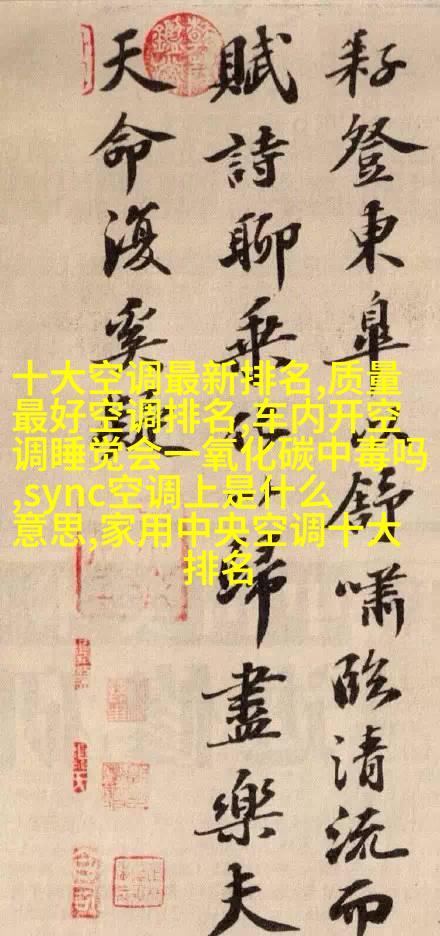 耔登東皐以舒嘯臨清流而
賦詩聊乘化以歸盡樂夫
天命復奚疑
十大空调最新排名,质量
最好空调排名,车内开空
调睡觉会一氧化碳中毒吗
,sync空调上是什么
意思,家用中央空调十大
排名